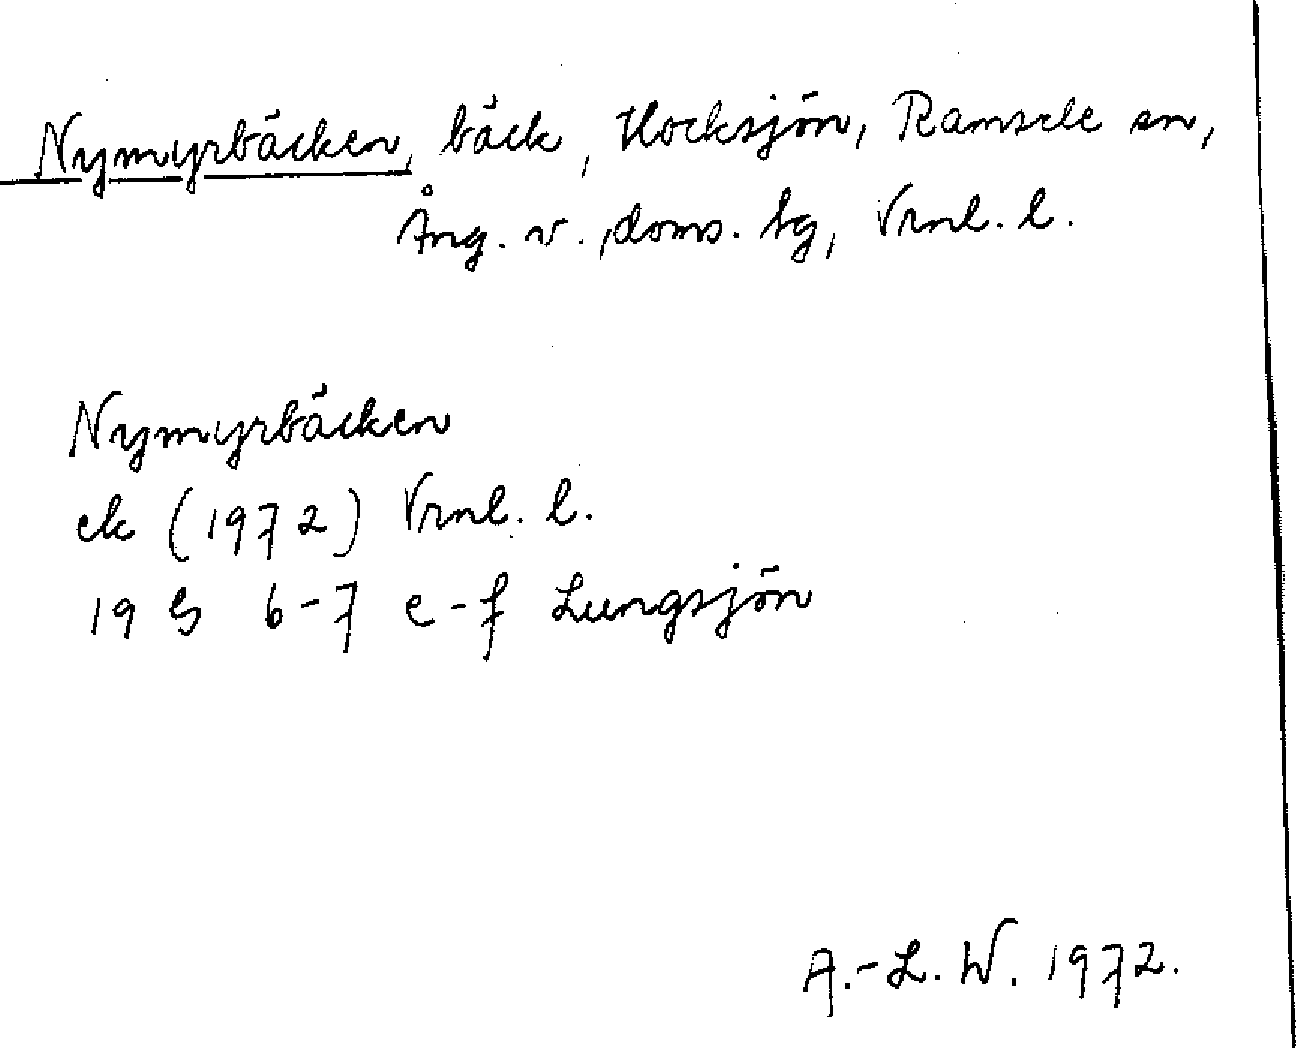 Nymyrbäcken, bäck, Hocksjön, Ramsele sn,
Ång. v. doms. bg, Vrnl. l.
Nymyrbäcken
ek (1972) Vrnl. l.
19 G 6-7 e-f Lungsjön
A.-L. W. 1972.